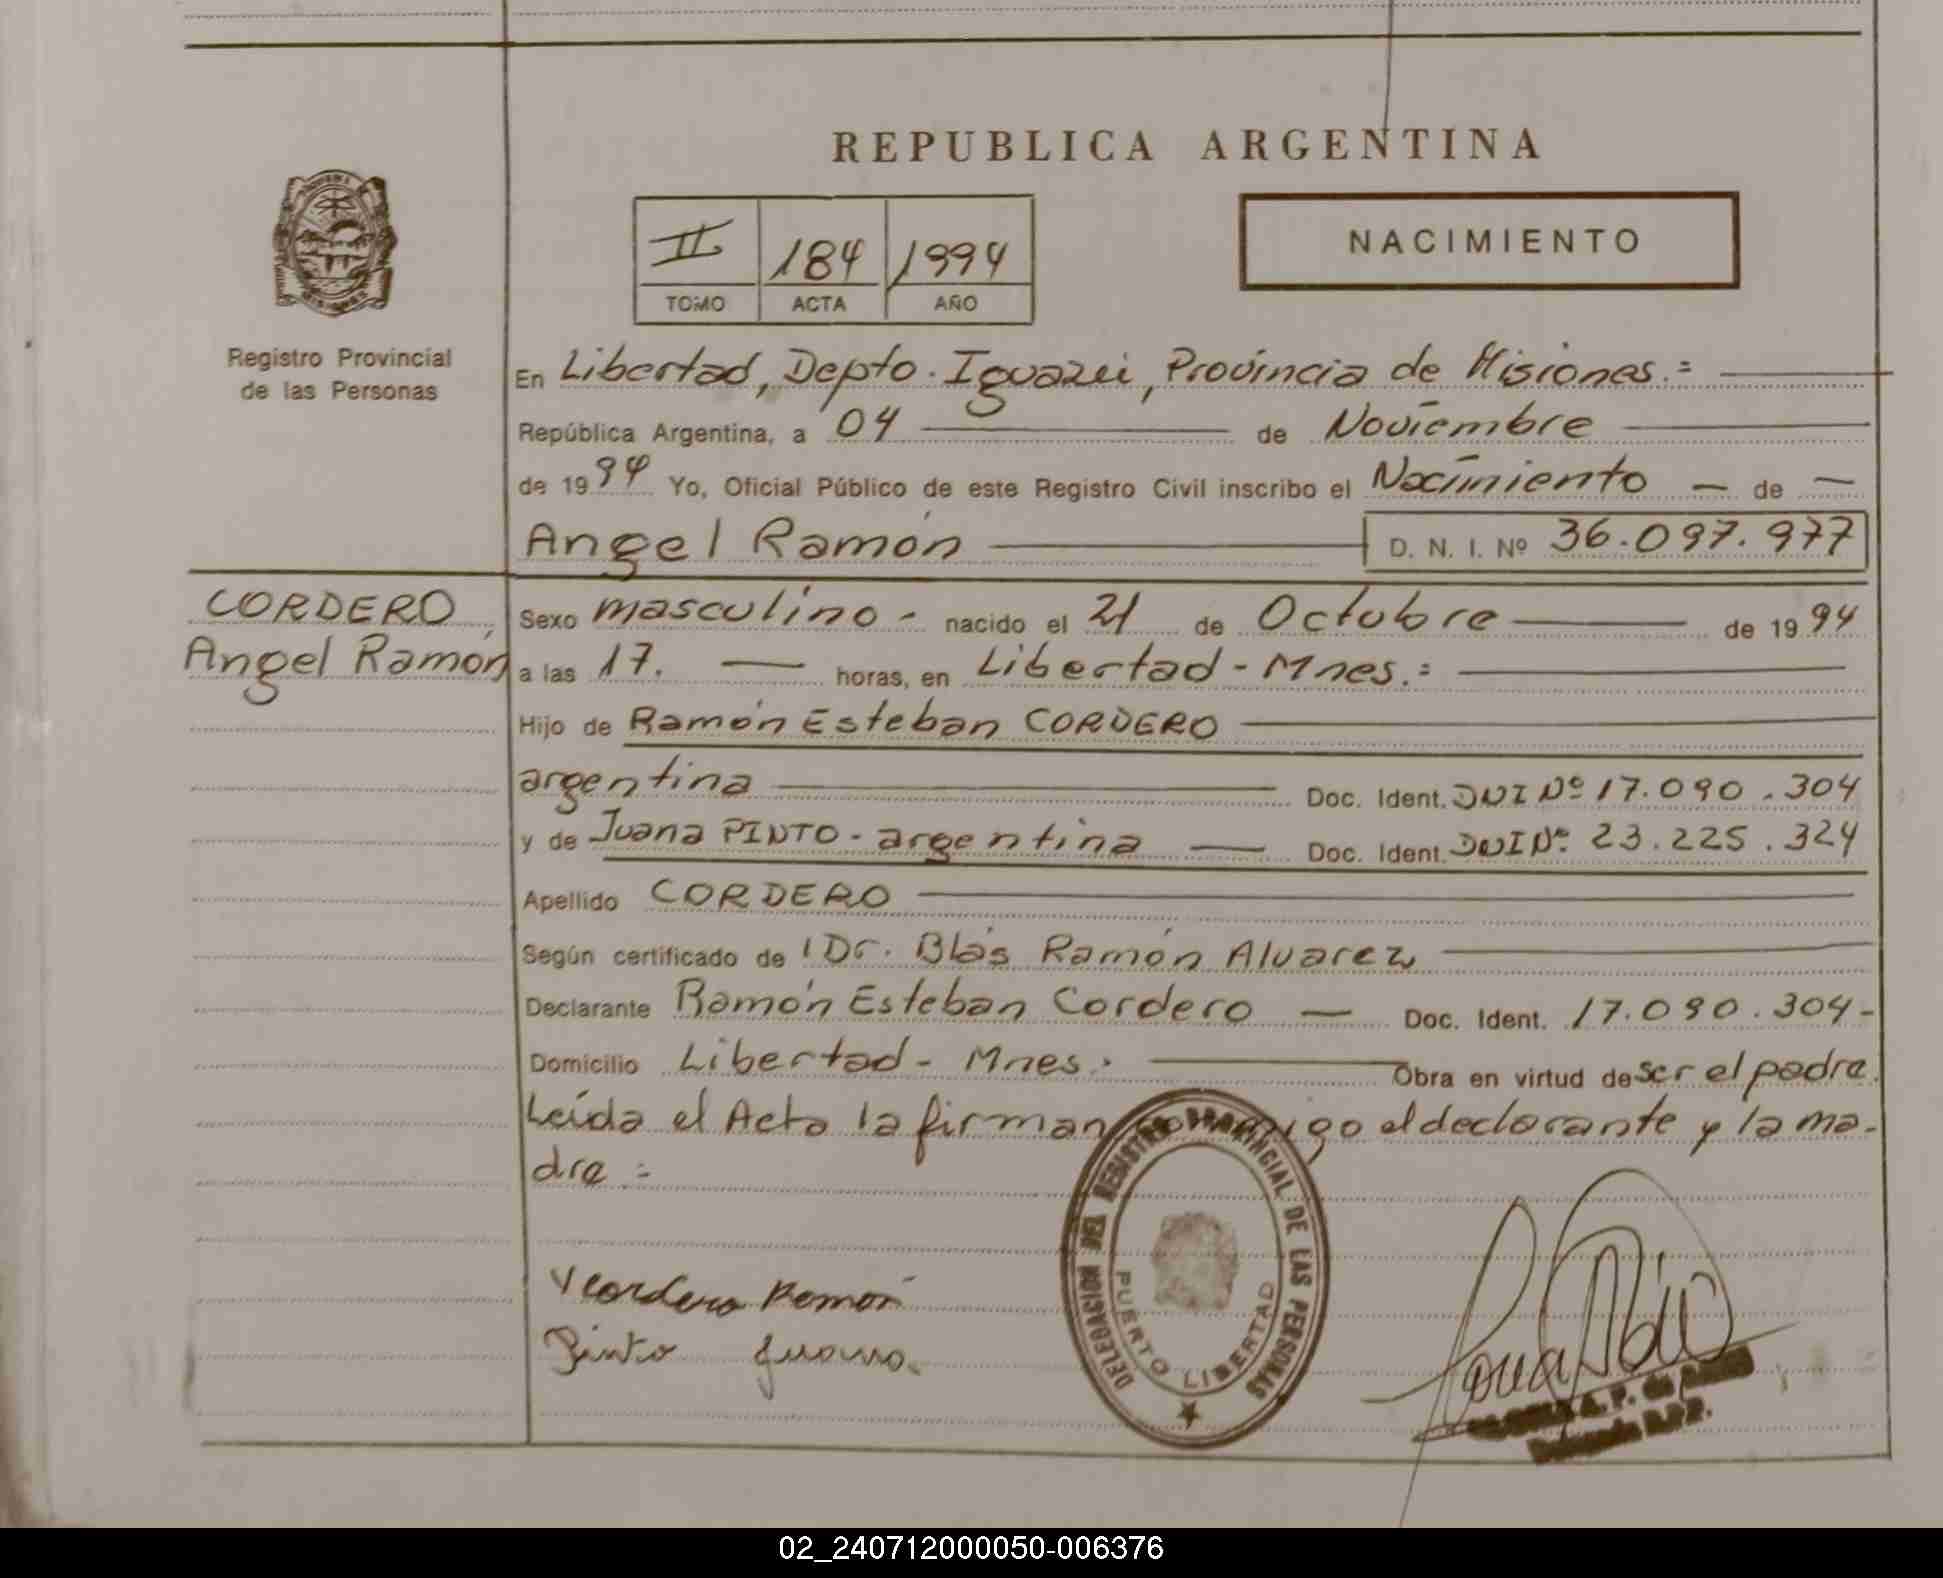 REPUBLICA ARGENTINA
II 184 1994
TOMO ACTA AÑO
NACIMIENTO
Registro Provincial
de las Personas
En Libertad, Depto. Iguazú, Provincia de Misiones.=
República Argentina, a 04 de Noviembre
de 1994 Yo, Oficial Público de este Registro Civil inscribo el Nacimiento — de —
Angel Ramón D. N. I. Nº 36.097.977
CORDERO
Angel Ramón
Sexo masculino - nacido el 21 de Octubre de 1994
a las 17. horas, en Libertad - Mnes.:
Hijo de Ramón Esteban CORDERO
argentina Doc. Ident. DNI Nº 17.090.304
y de Juana PINTO - argentina — Doc. Ident. DNI Nº 23.225.324
Apellido CORDERO
Según certificado de Dr. Blás Ramón Alvarez
Declarante Ramón Esteban Cordero — Doc. Ident. 17.090.304-
Domicilio Libertad - Mnes. Obra en virtud de ser el padre.
Leída el Acta la firman conmigo el declarante y la ma-
dre =
Cordero Ramón
Pinto Juana.
DELEGACION DEL REGISTRO PROVINCIAL DE LAS PERSONAS
PUERTO LIBERTAD
02_240712000050-006376